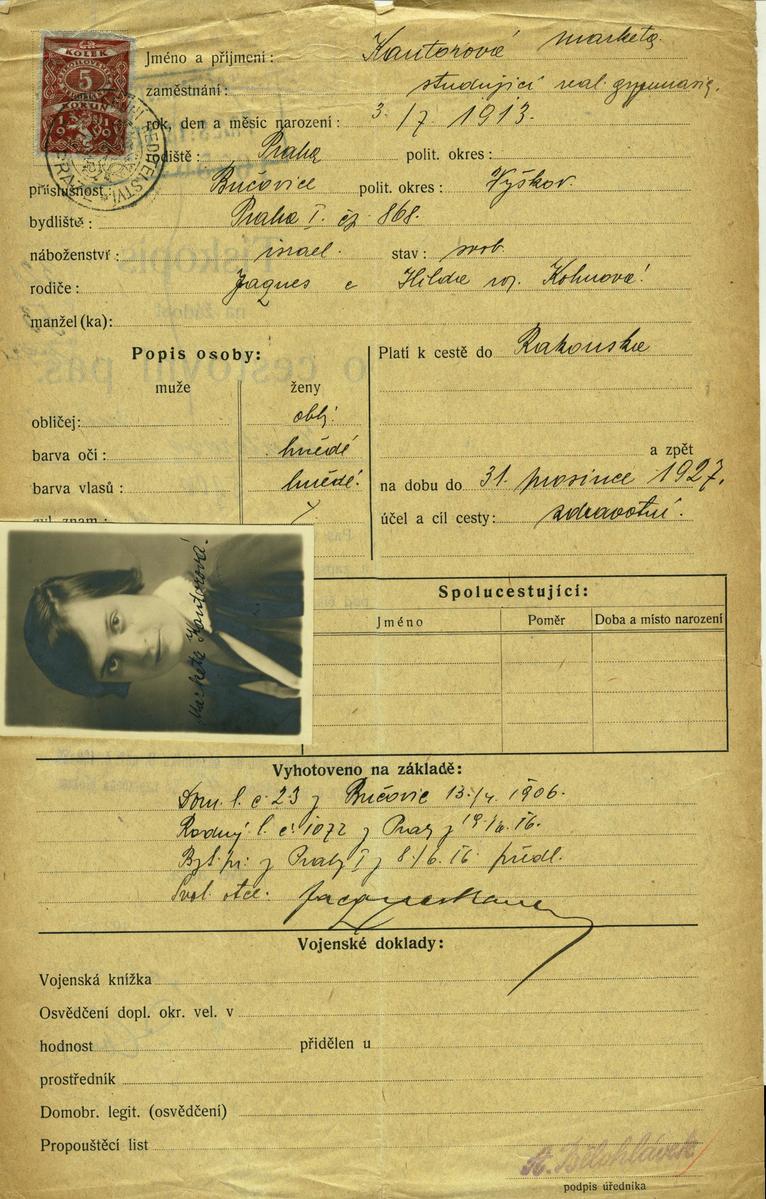 KOLEK
5
KORUN
1919
Jméno a příjmení: Kantorová Marketa
zaměstnání: studující real. gymnasia.
rok, den a měsíc narození: 3./7. 1913.
Praha polit. okres:
příslušnost: Bučovice polit. okres: Vyškov.
bydliště: Praha I. čp. 868.
náboženství: israel. stav: svob.
rodiče: Jaques a Hilda roz. Kohnová!
manžel (ka):
Popis osoby:
muže ženy
obličej: obl.
barva očí: hnědé
barva vlasů: hnědé.
zvl. znam.:
Platí k cestě do Rakouska
a zpět
na dobu do 31. prosince 1927.
účel a cíl cesty: zdravotní.
Marketa Kantorová.
Spolucestující:
Jméno Poměr Doba a místo narození
Vyhotoveno na základě:
Dom. l. č. 23 z Bučovic 1906.
Rodný l. č. 1072 z Prahy z
Byt. př. z Prahy I z předl.
Svol. otce:
Vojenské doklady:
Vojenská knížka
Osvědčení dopl. okr. vel. v
hodnost přidělen u
prostředník
Domobr. legit. (osvědčení)
Propouštěcí list
St. Bělohlávek
podpis úředníka